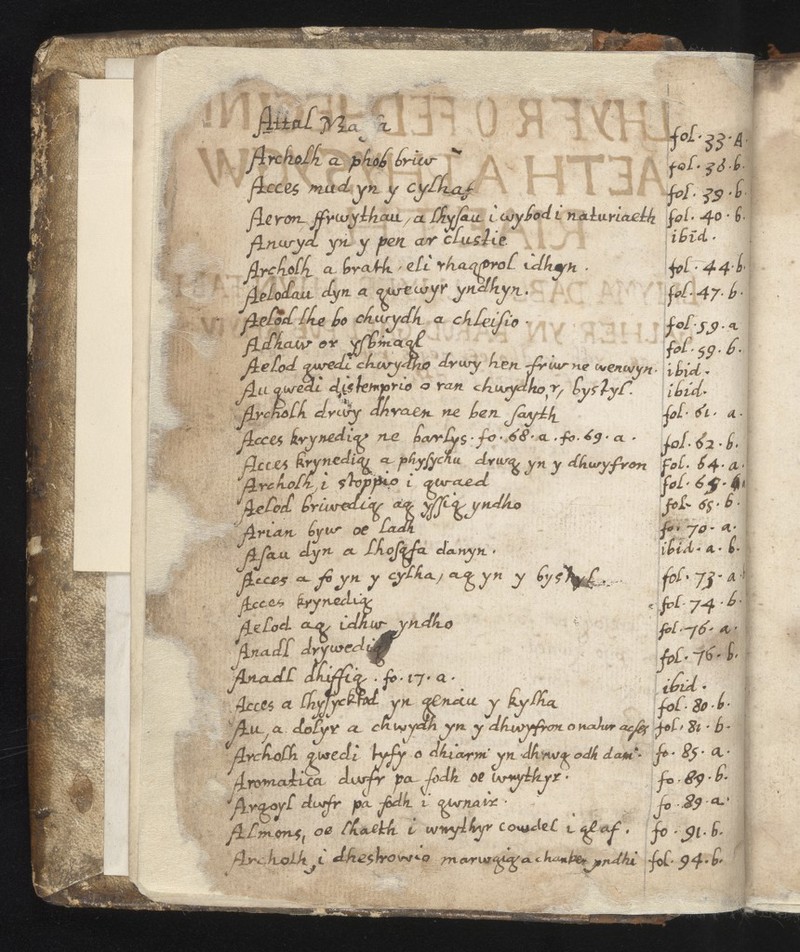 Attal fol. 33. A.
Archolh a phob briw fol. 38. b.
Acces mud yn y cylhaf fol. 39. b.
Aeron ffrwythau, a lhysau i wybod i naturiaeth fol. 40. b.
Anwyd yn y pen ar clustie ibid.
Archolh a brath, eli rhagorol idhyn. fol. 44. b.
Aelodau dyn a gwewyr yndhyn. fol. 47. b.
Aelod lhe bo chwydh a chleisio. fol. 59. a
Adhaw or fol. 59. b.
Aelod gwedi chwydho drwy hen friw ne wenwyn. ibid.
Au gwedi distemprio o ran chwydho, r, bystyl. ibid.
Archolh drwy dhraen ne ben sayth fol. 61. a.
Acces krynedig ne barlys. fo. 68. a. fo. 69. a. fol. 62. b.
Acces krynedig a physychu drwg yn y dhwyfron Fol. 64. a.
Archolh, i stoppio i gwaed fol. 65.
Aelod briwedig ag yssig yndho fol. 65. b.
Arian byw oe ladh fo. 70. a.
Asau dyn a lhosgfa danyn. ibid. a. b.
Acces a fo yn y cylha, ag yn y fol. 73. a
Acces krynedig fol. 74. b.
Aelod ag idhw yndho fol. 76. a.
Anadl drywedig fol. 76. b.
Anadl dhiffig. fo. 17. a. ibid.
Acces a yn genau y kylha fol. 80. b.
Au, a dolyr a chwydh yn y dhwyfron o natur fol. 81. b.
Archolh gwedi tyfy o dhiarm yn dhrwg odh fo. 85. a.
Aromatica dwfr pa fodh oe wnythyr. fo. 89. b.
Argoyl dwfr pa fodh i gwnair. fo. 89. a.
Almons, oe lhaeth i wnythyr cowdel i glaf. fo. 91. b.
Archolh, i dhestrowio marwgig a chanker yndhi fol. 94. b.